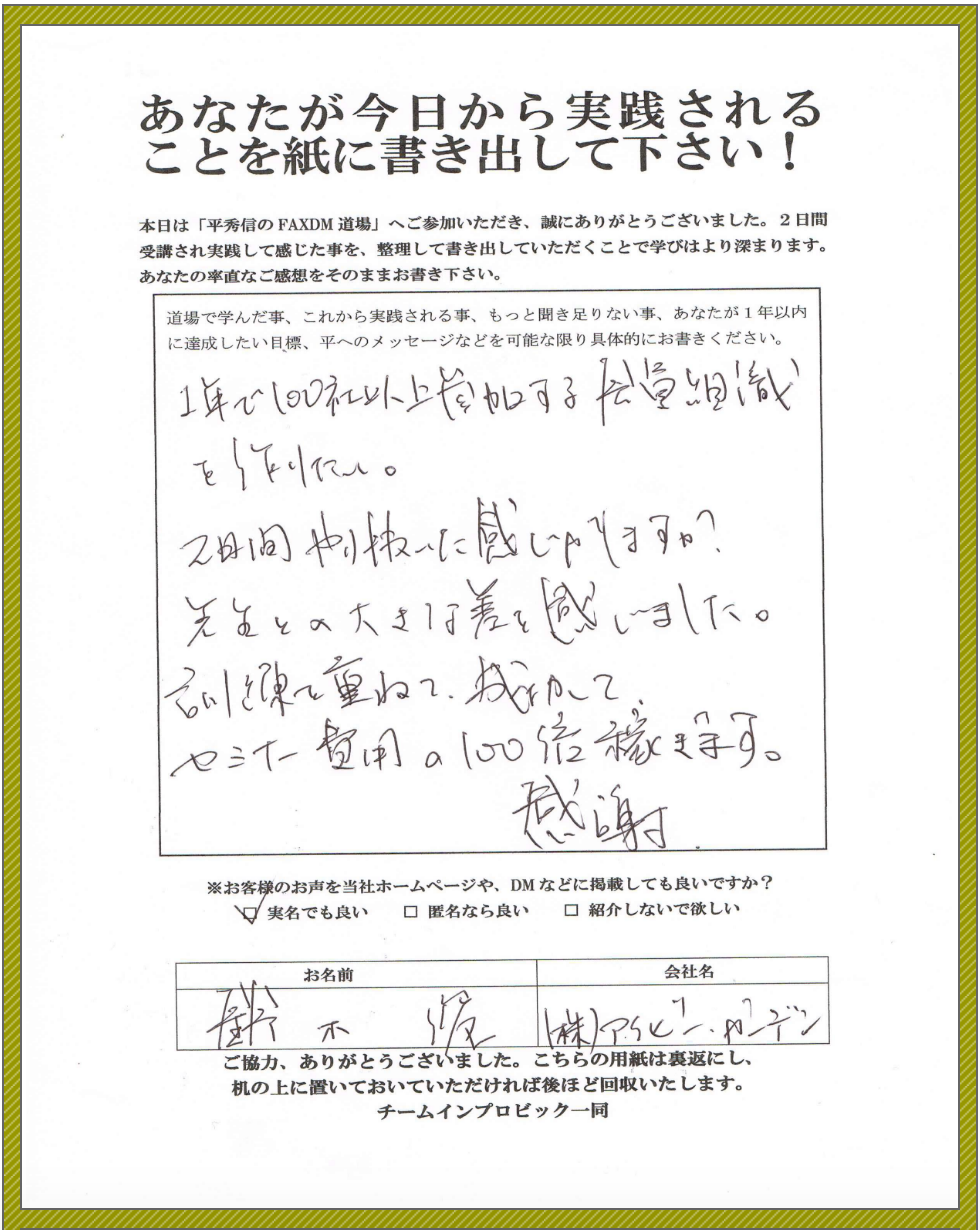 あなたが今日から実践される
ことを紙に書き出して下さい！
本日は「平秀信のFAXDM道場」へご参加いただき、誠にありがとうございました。2日間
受講され実践して感じた事を、整理して書き出していただくことで学びはより深まります。
あなたの率直なご感想をそのままお書き下さい。
道場で学んだ事、これから実践される事、もっと聞き足りない事、あなたが1年以内
に達成したい目標、平へのメッセージなどを可能な限り具体的にお書きください。
1年で100社以上参加する会員組織
を作りたい。
2日間やり抜いた感じがしますが
先生との大きな差を感じました。
訓練を重ねて、成功して
セミナー費用の100倍稼ぎます。
感謝
※お客様のお声を当社ホームページや、DMなどに掲載しても良いですか？
実名でも良い 匿名なら良い 紹介しないで欲しい
お名前 会社名
鈴木 (株)アイビー・ガーデン
ご協力、ありがとうございました。こちらの用紙は裏返にし、
机の上に置いておいていただければ後ほど回収いたします。
チームインプロビック一同